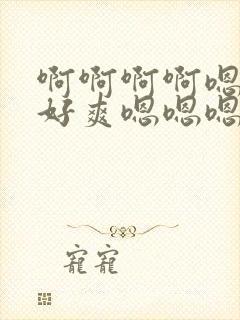 啊啊啊啊嗯
好爽嗯嗯嗯
宠宠